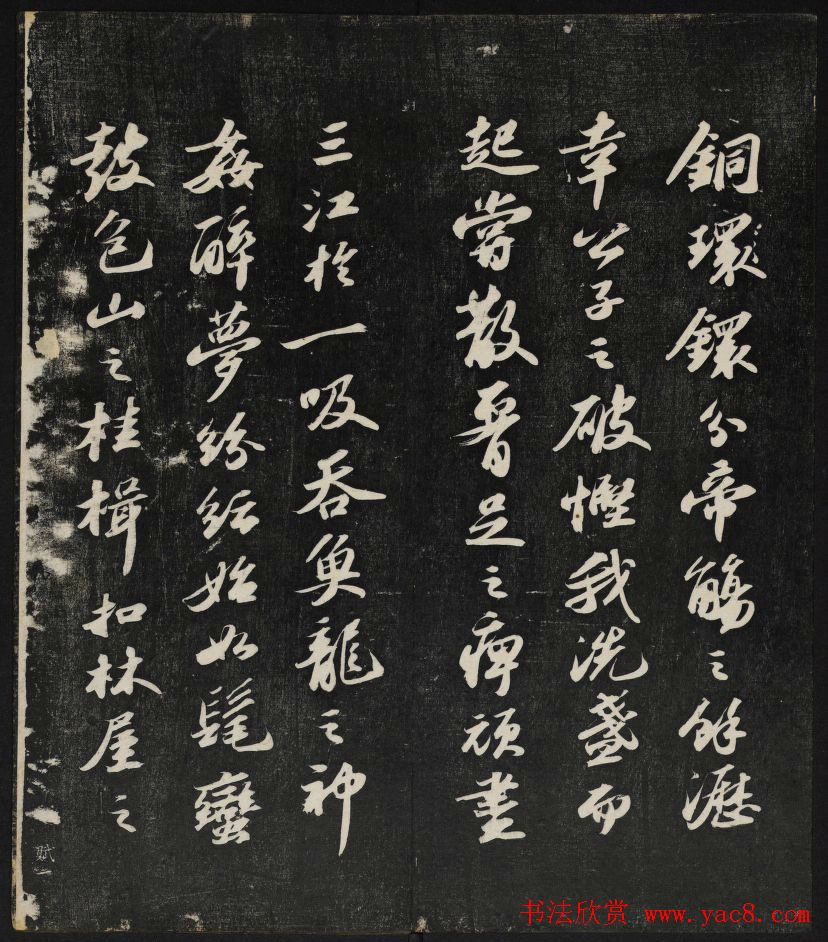 銅環鐶分帝觴之餘瀝
幸公子之破慳我洗盞而
起嘗散署足之痺頑盡
三江於一吸吞魚龍之神
姦醉夢紛紜始如髦蠻
鼓包山之桂楫扣林屋之
賦一
书法欣赏 www.yac8.com